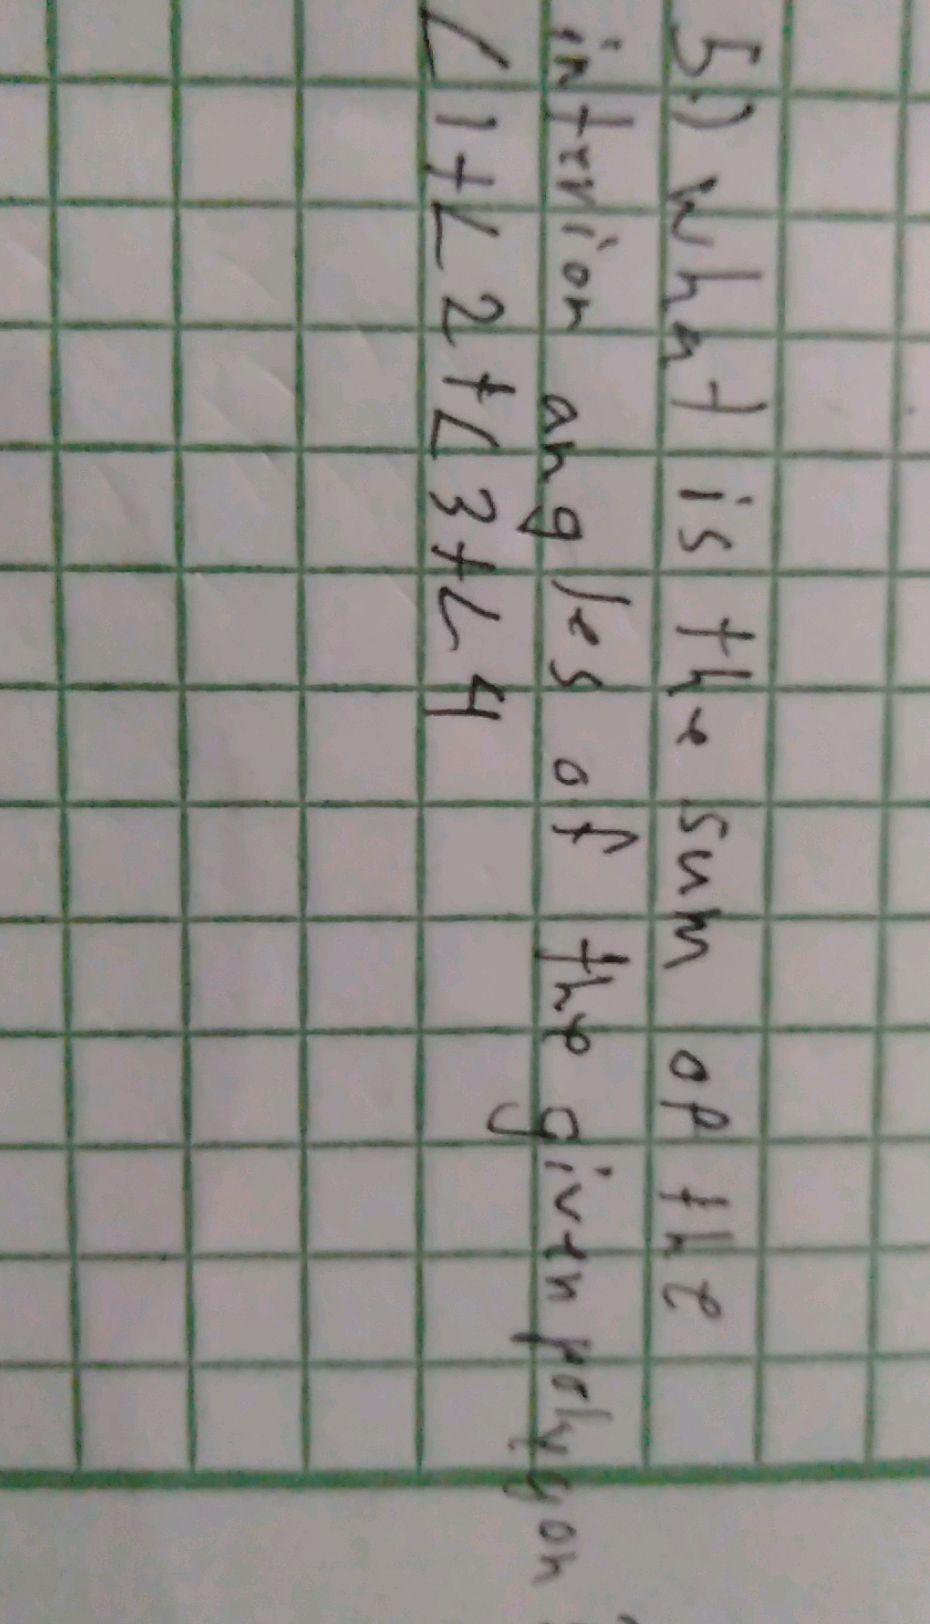 5.) what is the sum of the
intrvion angles of the given polygon
∠1+∠2+∠3+∠4